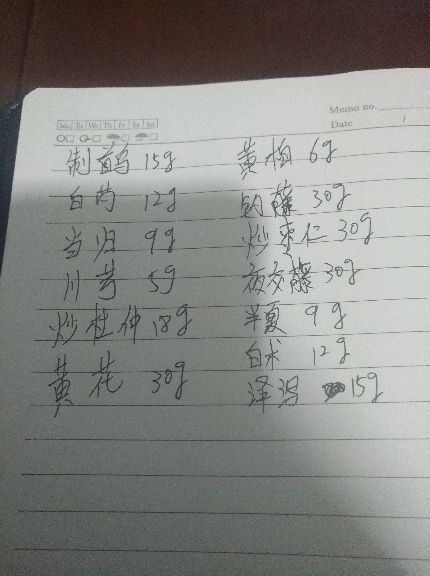 Memo no.
Date
Mo Tu We Th Fr Sa Su
制首乌 15g 黄柏 6g
白芍 12g 钩藤 30g
当归 9g 炒枣仁 30g
川芎 5g 夜交藤 30g
炒杜仲 18g 半夏 9g
白术 12g
黄花 30g 泽泻 15g